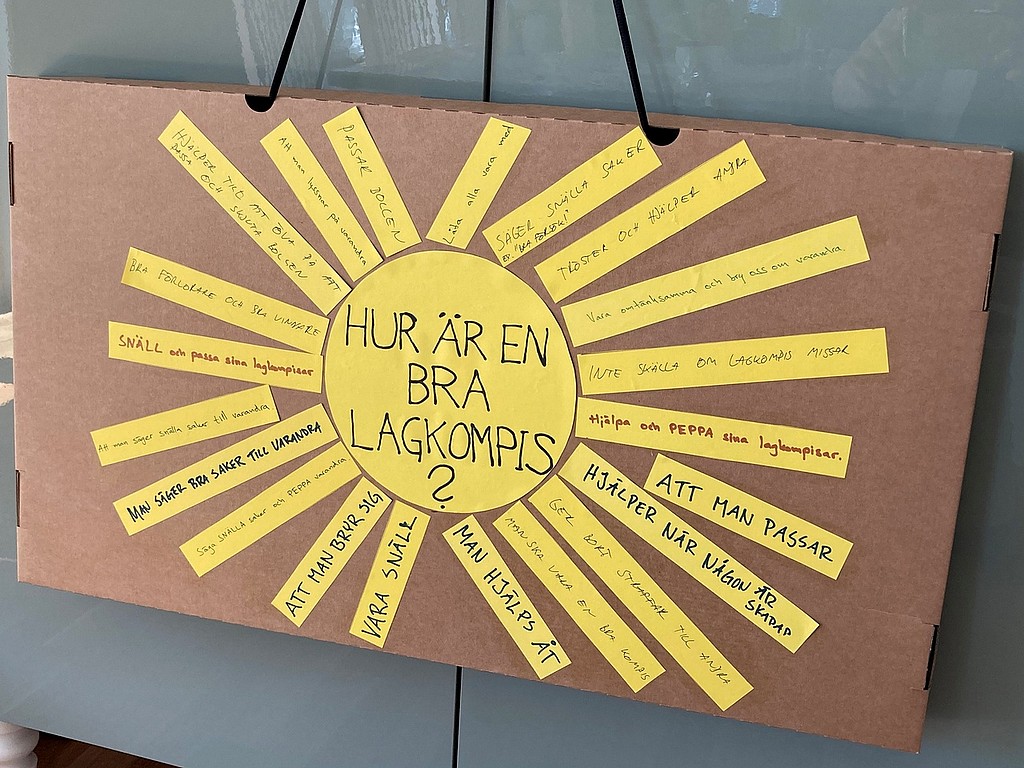 HUR ÄR EN
BRA
LAGKOMPIS
?
HJÄLPER TILL ATT ÖVA PÅ ATT
PASSA OCH SKJUTA BOLLEN
Att man lyssnar på varandra
PASSAR BOLLEN
Låta alla vara med
SÄGER SNÄLLA SAKER
EX. "BRA FÖRSÖK!"
TRÖSTER OCH HJÄLPER ANDRA
Vara omtänksamma och bry oss om varandra.
INTE SKÄLLA OM LAGKOMPIS MISSAR
Hjälpa och PEPPA sina lagkompisar.
ATT MAN PASSAR
HJÄLPER NÄR NÅGON ÄR
SKADAD
GER BORT STRAFFAR TILL ANDRA
MAN SKA VARA EN BRA KOMPIS
MAN HJÄLPS ÅT
VARA SNÄLL
ATT MAN BRYR SIG
Säga SNÄLLA saker och PEPPA varandra
MAN SÄGER BRA SAKER TILL VARANDRA
Att man säger snälla saker till varandra
SNÄLL och passa sina lagkompisar
BRA FÖRLORARE OCH BRA VINNARE